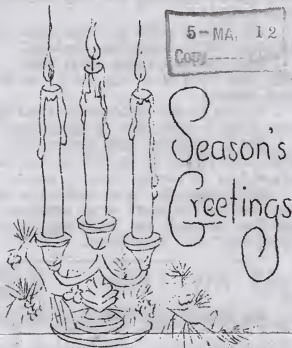 5-MA. 12
Copy
Season's
Greetings